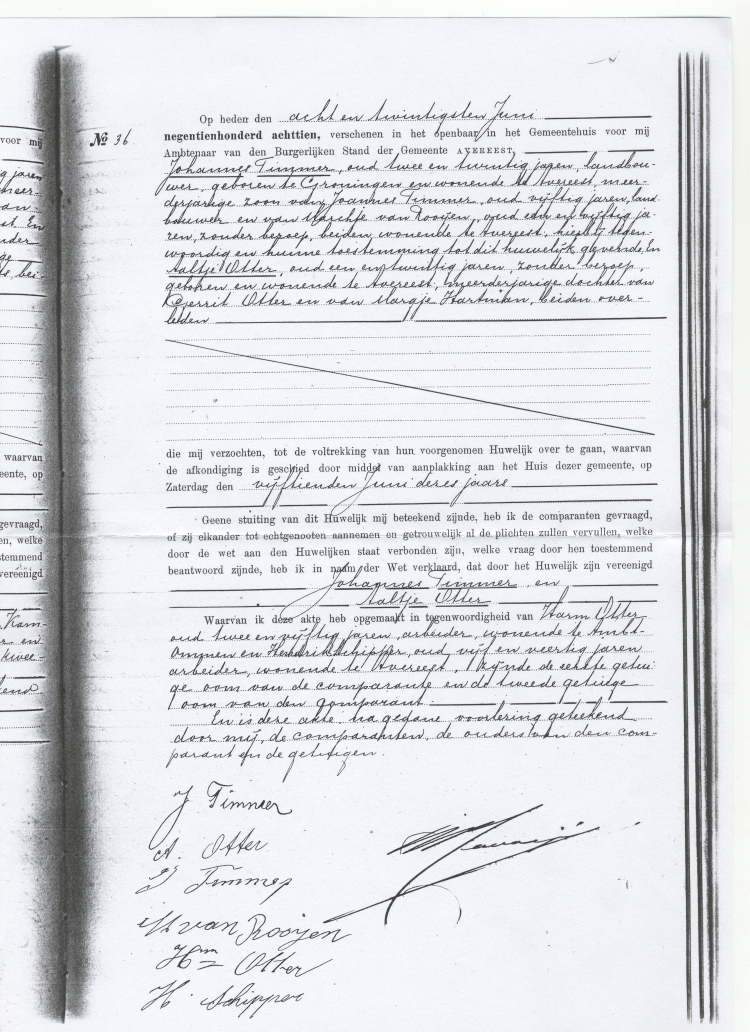 Op heden den acht en twintigsten Juni
Nº 36 negentienhonderd achttien, verschenen in het openbaar in het Gemeentehuis voor mij
Ambtenaar van den Burgerlijken Stand der Gemeente AVEREEST,
Johannes Timmer, oud twee en twintig jaren, landbou-
wer, geboren te Groningen en wonende te Avereest, meer-
derjarige zoon van Joannes Timmer, oud vijftig jaren, land-
bouwer en van Marchje van Rooijen, oud een en vijftig ja-
ren, zonder beroep, beiden wonende te Avereest, hierbij tegen-
woordig en hunne toestemming tot dit huwelijk gevende, En
Aaltje Otter, oud een en twintig jaren, zonder beroep,
geboren en wonende te Avereest, meerderjarige dochter van
Gerrit Otter en van Margje Hartman, beiden over-
leden
die mij verzochten, tot de voltrekking van hun voorgenomen Huwelijk over te gaan, waarvan
de afkondiging is geschied door middel van aanplakking aan het Huis dezer gemeente, op
Zaterdag den vijftienden Juni dezes jaars
Geene stuiting van dit Huwelijk mij beteekend zijnde, heb ik de comparanten gevraagd,
of zij elkander tot echtgenooten aannemen en getrouwelijk al de plichten zullen vervullen, welke
door de wet aan den Huwelijken staat verbonden zijn, welke vraag door hen toestemmend
beantwoord zijnde, heb ik in naam der Wet verklaard, dat door het Huwelijk zijn vereenigd
Johannes Timmer en
Aaltje Otter
Waarvan ik deze akte heb opgemaakt in tegenwoordigheid van Harm Otter
oud twee en vijftig jaren, arbeider, wonende te Ambt-
Ommen en Hendrik Schipper, oud vijf en veertig jaren
arbeider, wonende te Avereest, zijnde de eerste getui-
ge oom van de comparante en de tweede getuige
oom van den comparant.
En is deze akte na gedane voorlezing geteekend
door mij, de comparanten, de ouders van den com-
parant en de getuigen.
J Timmer
A. Otter
J Timmer
M van Rooijen
Hm Otter
H. Schipper
voor mij
jaren
meer-
an
st. En
nder
ge
bei-
waarvan
eente, op
gevraagd,
en, welke
stemmend
vereenigd
Kam-
en
twee-